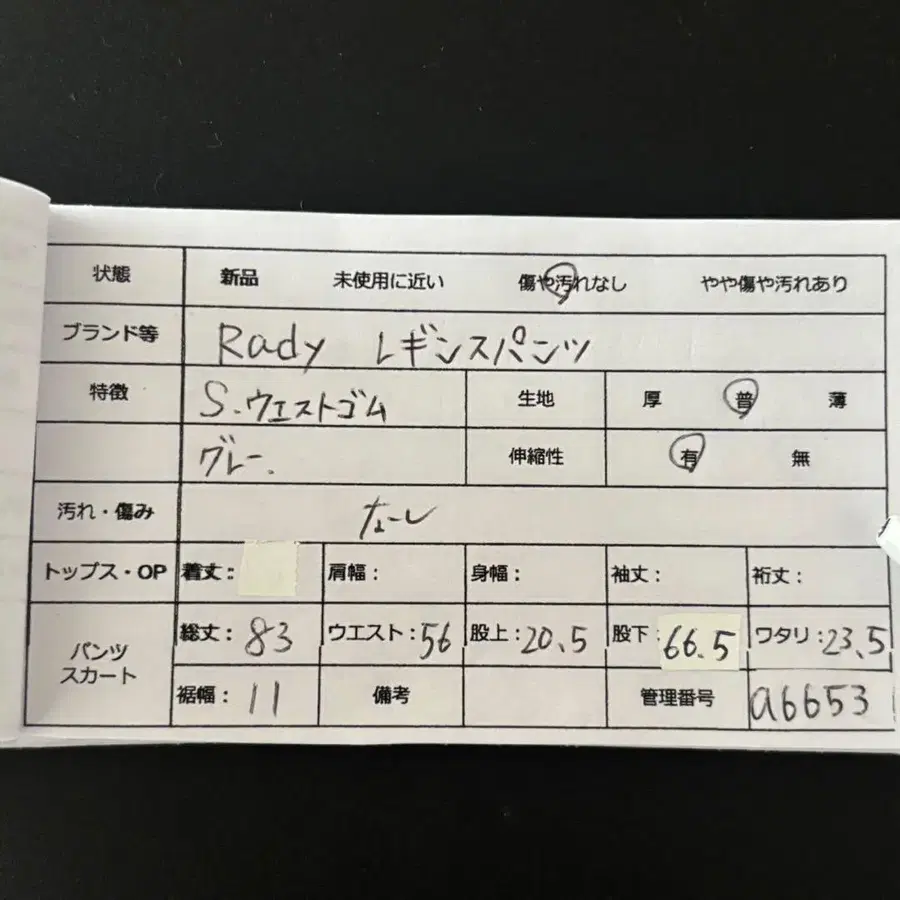 状態 新品 未使用に近い 傷や汚れなし やや傷や汚れあり
ブランド等 Rady レギンスパンツ
特徴 S.ウエストゴム 生地 厚 普 薄
グレー. 伸縮性 有 無
汚れ・傷み なし
トップス・OP 着丈: 肩幅: 身幅: 袖丈: 裄丈:
パンツ スカート 総丈: 83 ウエスト: 56 股上: 20.5 股下 66.5 ワタリ: 23.5
裾幅: 11 備考 管理番号 a6653